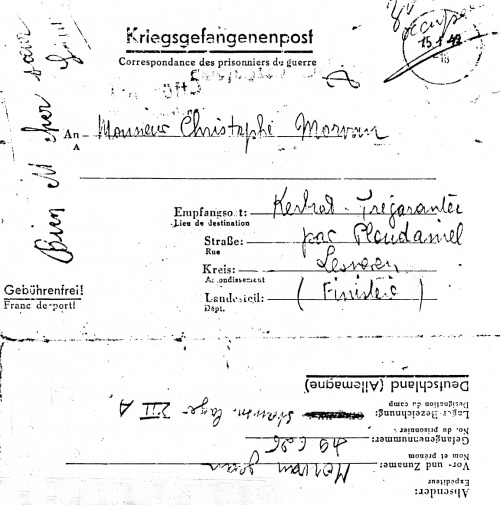 Kriegsgefangenenpost
Correspondance des prisonniers de guerre
15.1.42
Bien cher
An
A
Monsieur Christophe Morvan
Empfangsort: Kerbrat - Trégarantec
Lieu de destination
Straße: par Ploudaniel
Rue
Kreis: Lesneven
Arrondissement
Landesteil: ( Finistère )
Dépt.
Gebührenfrei!
Franc de port!
Deutschland (Allemagne)
Lager-Bezeichnung: Stamm. lager VII A
Désignation du camp
Gefangenennummer: 49626
No. du prisonnier
Vor- und Zuname: Morvan Jean
Nom et prénom
Absender:
Expéditeur